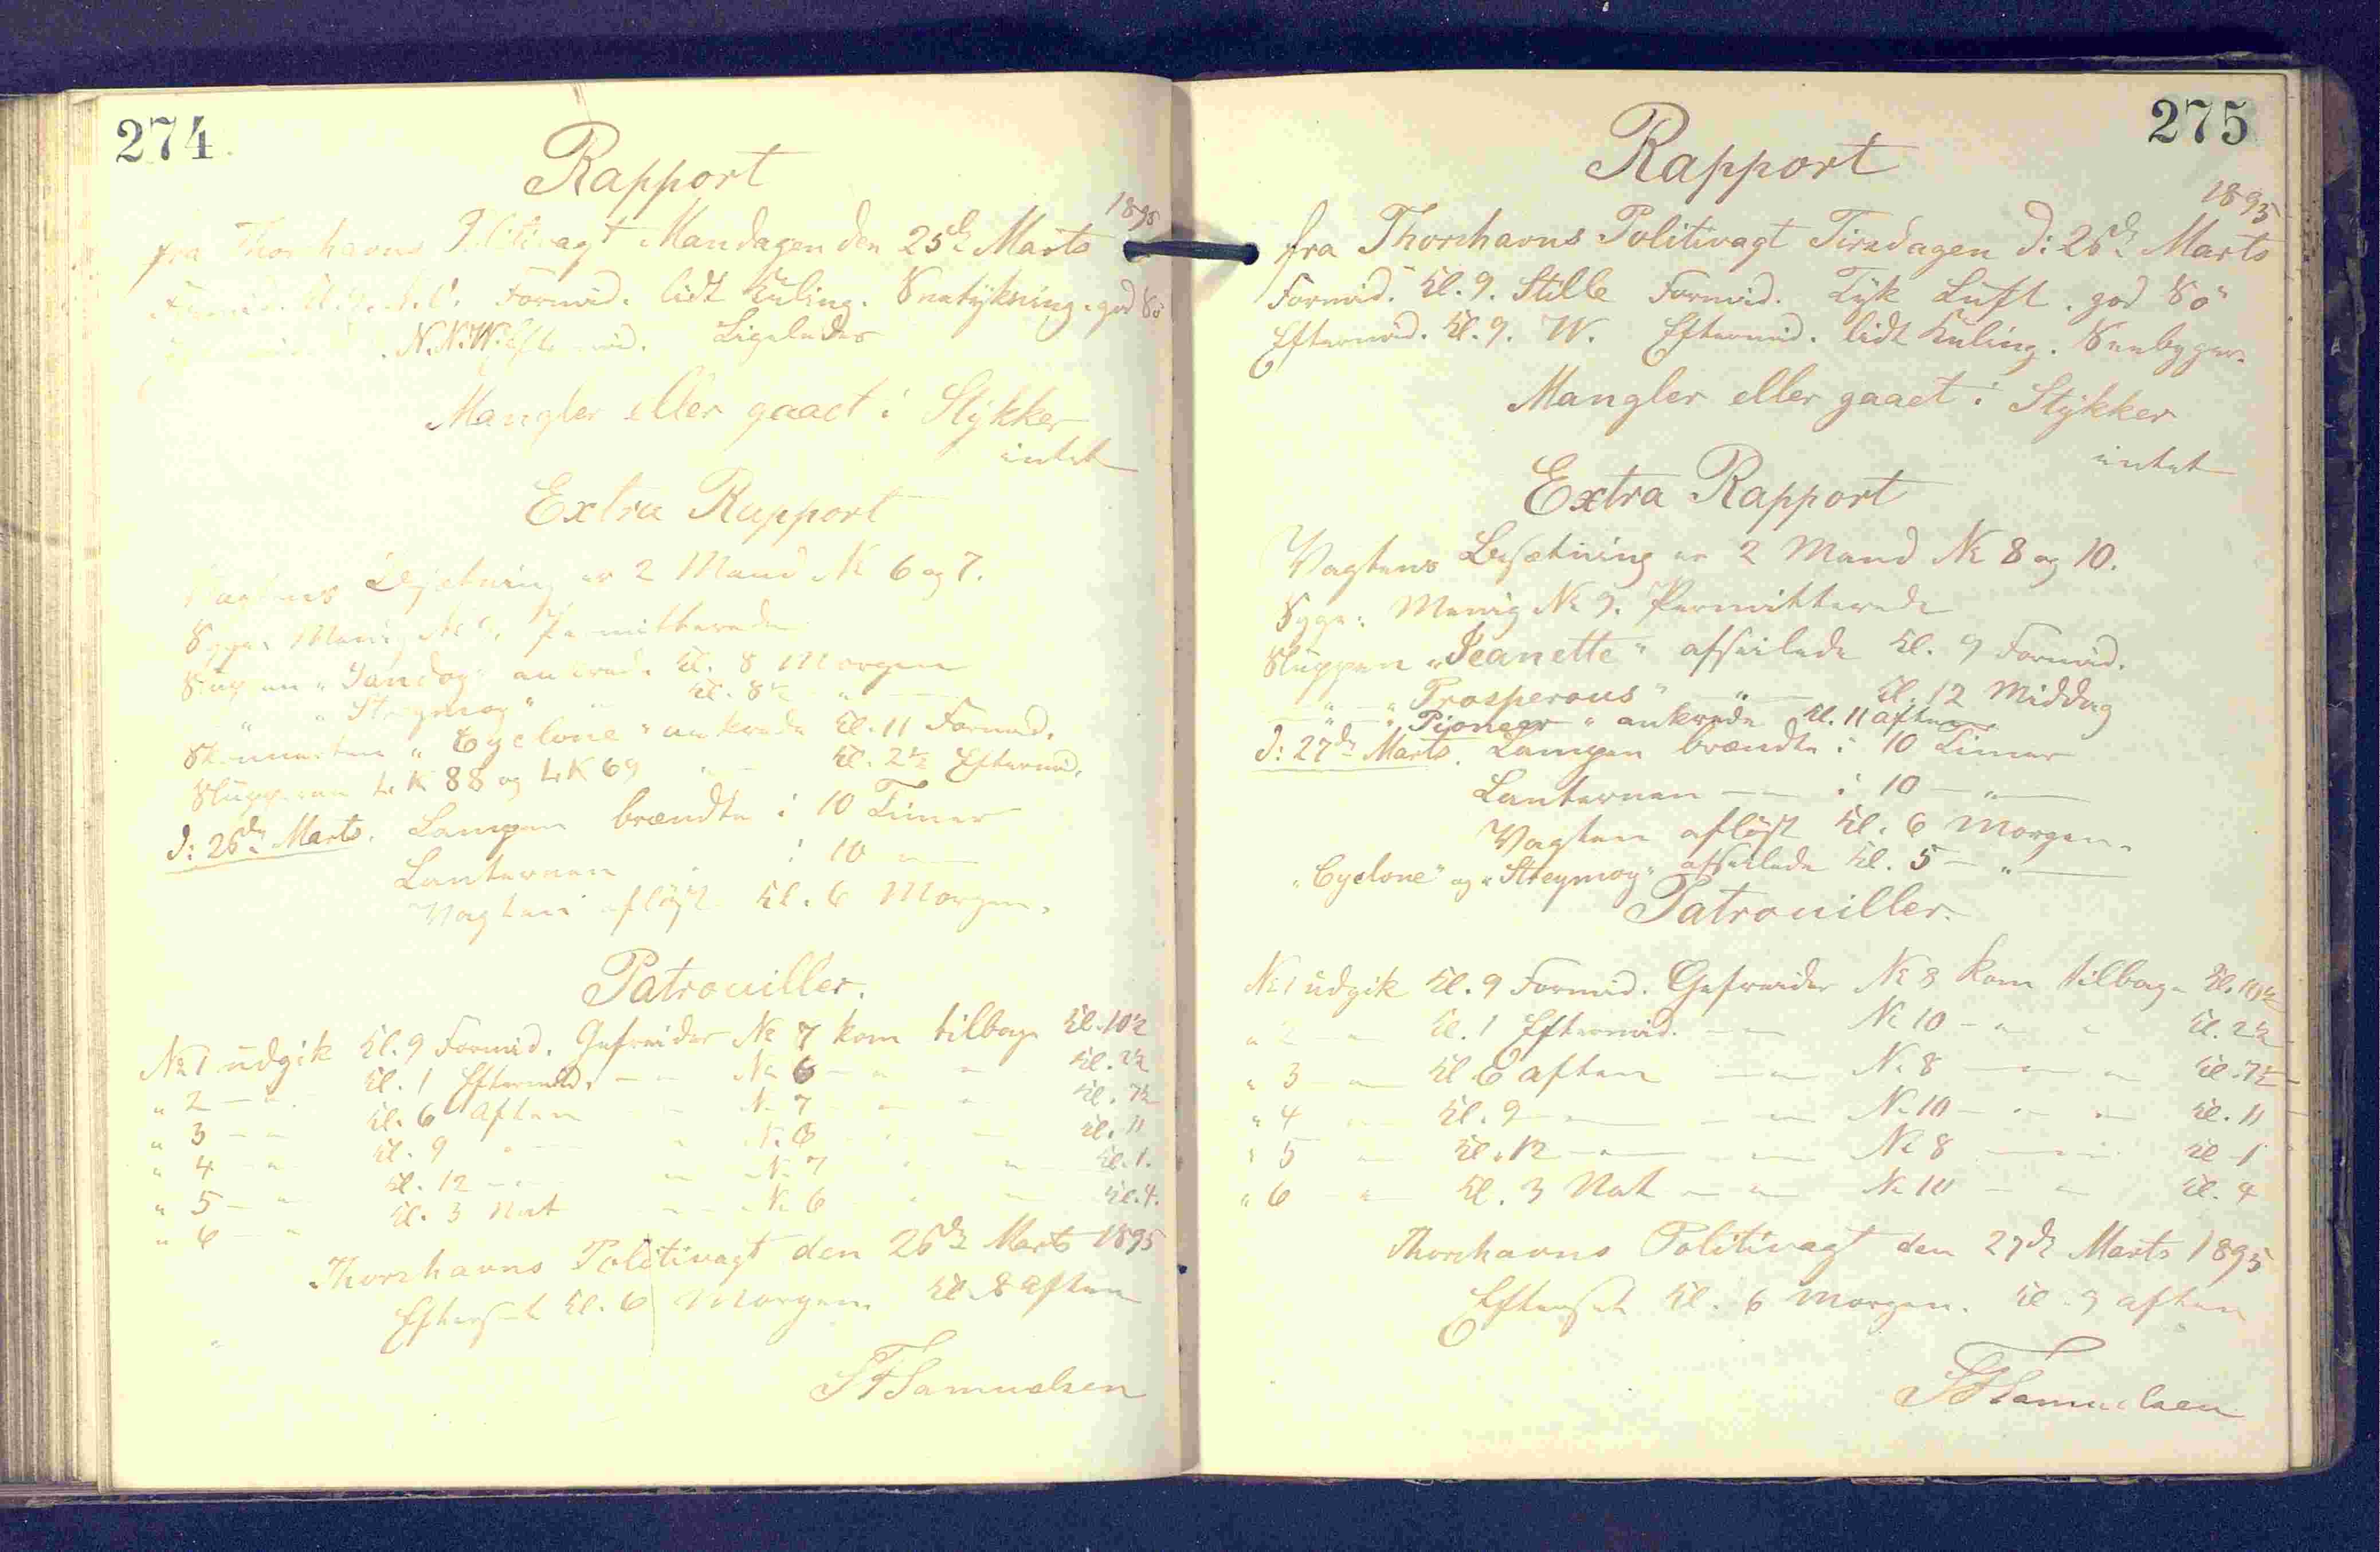 274
Rapport
1895
fra Thorshavns Politivagt Mandagen den 25de Marts
Formid. lidt Kuling. Sneetykning. god Sö
N.N.W. Eftermid. Ligeledes
Mangler eller gaaet i Stykker
intet
Extra Rapport
Vagtens Besætning er 2 Mand № 6 og 7.
Syge: Menig Permitterede
Sluppen "Sandoy" ankrede Kl. 8 Morgen
" " Streymoy" " Kl. 8½ "
Skonnerten "Cyclone" ankrede Kl. 11 Formid.
Slupperne LK 88 og LK 69 " Kl. 2½ Eftermid.
d: 26de Marts. Lampen brændte i 10 Timer
Lanternen i 10 "
Vagten aflöst Kl. 6 Morgen.
Patrouiller.
№ 1 udgik Kl. 9 Formid. Gefreider № 7 kom tilbage Kl. 10½
" 2 — " Kl. 1 Eftermid. — " № 6 — " " Kl. 2½
" 3 — " Kl. 6 Aften " № 7 " " Kl. 7½
" 4 — " Kl. 9 " " № 6 " Kl. 11
" 5 — " Kl. 12 — " " № 7 " " Kl. 1.
" 6 — " Kl. 3 Nat " № 6 " " Kl. 4.
Thorshavns Politivagt den 26de Marts 1895
Efterset Kl. 6 Morgen. Kl. 8 Aften
SFSamuelsen
275
Rapport
1895
fra Thorshavns Politivagt Tirsdagen d: 26de Marts
Formid. Kl. 9. Stille Formid. Tyk Luft. god Sö
Eftermid. Kl. 9. W. Eftermid. lidt Kuling. Sneebyger.
Mangler eller gaaet i Stykker
intet
Extra Rapport
Vagtens Besætning er 2 Mand № 8 og 10.
Syge: Menig № 9. Permitterede
Sluppen "Jeanette" afseilede Kl. 9 Formid.
" — " Prosperous" — " — Kl. 12 Middag
" — " Pioneer" ankrede Kl. 11 Aften
d: 27de Marts. Lampen brændte i 10 Timer
Lanternen — " i 10 — " —
Vagten aflöst Kl. 6 Morgen.
"Cyclone" og "Streymoy" afseilede Kl. 5 — " —
Patrouiller.
№ 1 udgik Kl. 9 Formid. Gefreider № 8 kom tilbage Kl. 10½
" 2 — " Kl. 1 Eftermid. — " № 10 — " " Kl. 2½
" 3 — " Kl 6 Aften — " № 8 — " " Kl. 7½
" 4 — " Kl. 9 — " — " № 10 — " " Kl. 11
" 5 — " Kl. 12 — " — " № 8 — " Kl 1
" 6 — " Kl. 3 Nat — " № 10 — " Kl. 4
Thorshavns Politivagt den 27de Marts 1895
Efterset Kl. 6 Morgen. Kl. 9 Aften
SFSamuelsen